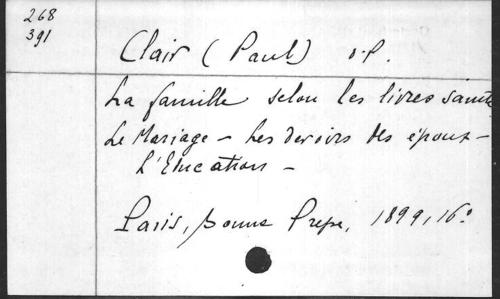 268
391
Clair (Paul) o.p.
La famille selon les livres saints
Le Mariage - Les devoirs des époux -
L'Education -
Paris, Bonne Presse, 1899, 16°